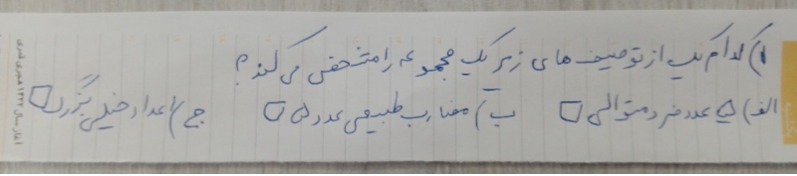 ۱) کدام یک از توصیف های زیر یک مجموعه را مشخص می کند؟
الف) ۵ عدد فرد متوالی □ ب) مضارب طبیعی عدد ۵ □ ج) اعداد خیلی بزرگ □
آغاز سال ۱۴۴۲ هجری قمری